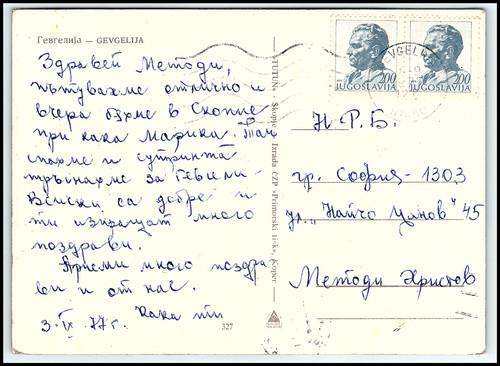 Гевгелија — GEVGELIJA
Здравей Методи,
пътувахме отлично и
вчера бяхме в Скопие
при кака Марика. Там
спахме и сутринта
тръгнахме за Гевгели-
Всички са добре и
ти изпращат много
поздрави.
Приеми много поздра
ви и от нас.
Кака ти
3.IX 77г.
327
"TUTUN" Skopje Izrada CZP »Primorski tisk«, Koper
2,00 2,00
JUGOSLAVIJA JUGOSLAVIJA
GEVGELIJA
Н.Р.Б.
гр. София - 1303
ул. "Найчо Цанов" 45
Методи Христов